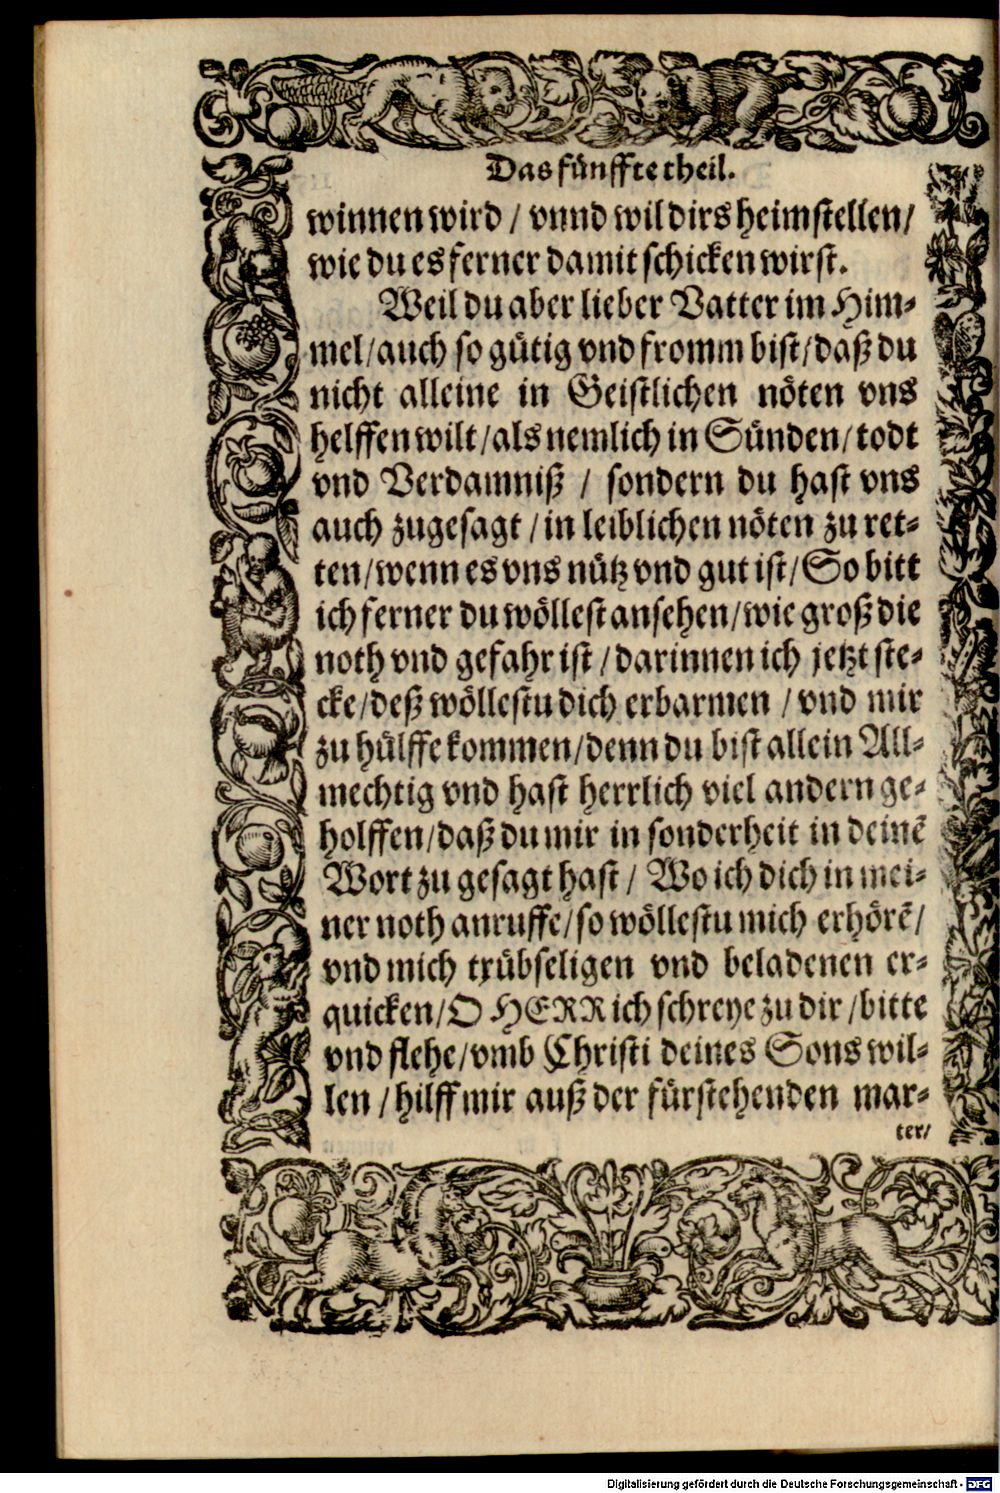 Das fünffte theil.
winnen wird / vnnd wil dirs heimstellen /
wie du es ferner damit schicken wirst.
Weil du aber lieber Vatter im Him-
mel / auch so gütig vnd fromm bist / daß du
nicht alleine in Geistlichen nöten vns
helffen wilt / als nemlich in Sünden / todt
vnd Verdamniß / sondern du hast vns
auch zugesagt / in leiblichen nöten zu ret-
ten / wenn es vns nütz vnd gut ist / So bitt
ich ferner du wöllest ansehen / wie groß die
noth vnd gefahr ist / darinnen ich jetzt ste-
cke / deß wöllestu dich erbarmen / vnd mir
zu hülffe kommen / denn du bist allein All-
mechtig vnd hast herrlich viel andern ge-
holffen / daß du mir in sonderheit in deinē
Wort zu gesagt hast / Wo ich dich in mei-
ner noth anruffe / so wöllestu mich erhörē /
vnd mich trübseligen vnd beladenen er-
quicken / O HERR ich schreye zu dir / bitte
vnd flehe / vmb Christi deines Sons wil-
len / hilff mir auß der fürstehenden mar-
ter /
Digitalisierung gefördert durch die Deutsche Forschungsgemeinschaft - DFG